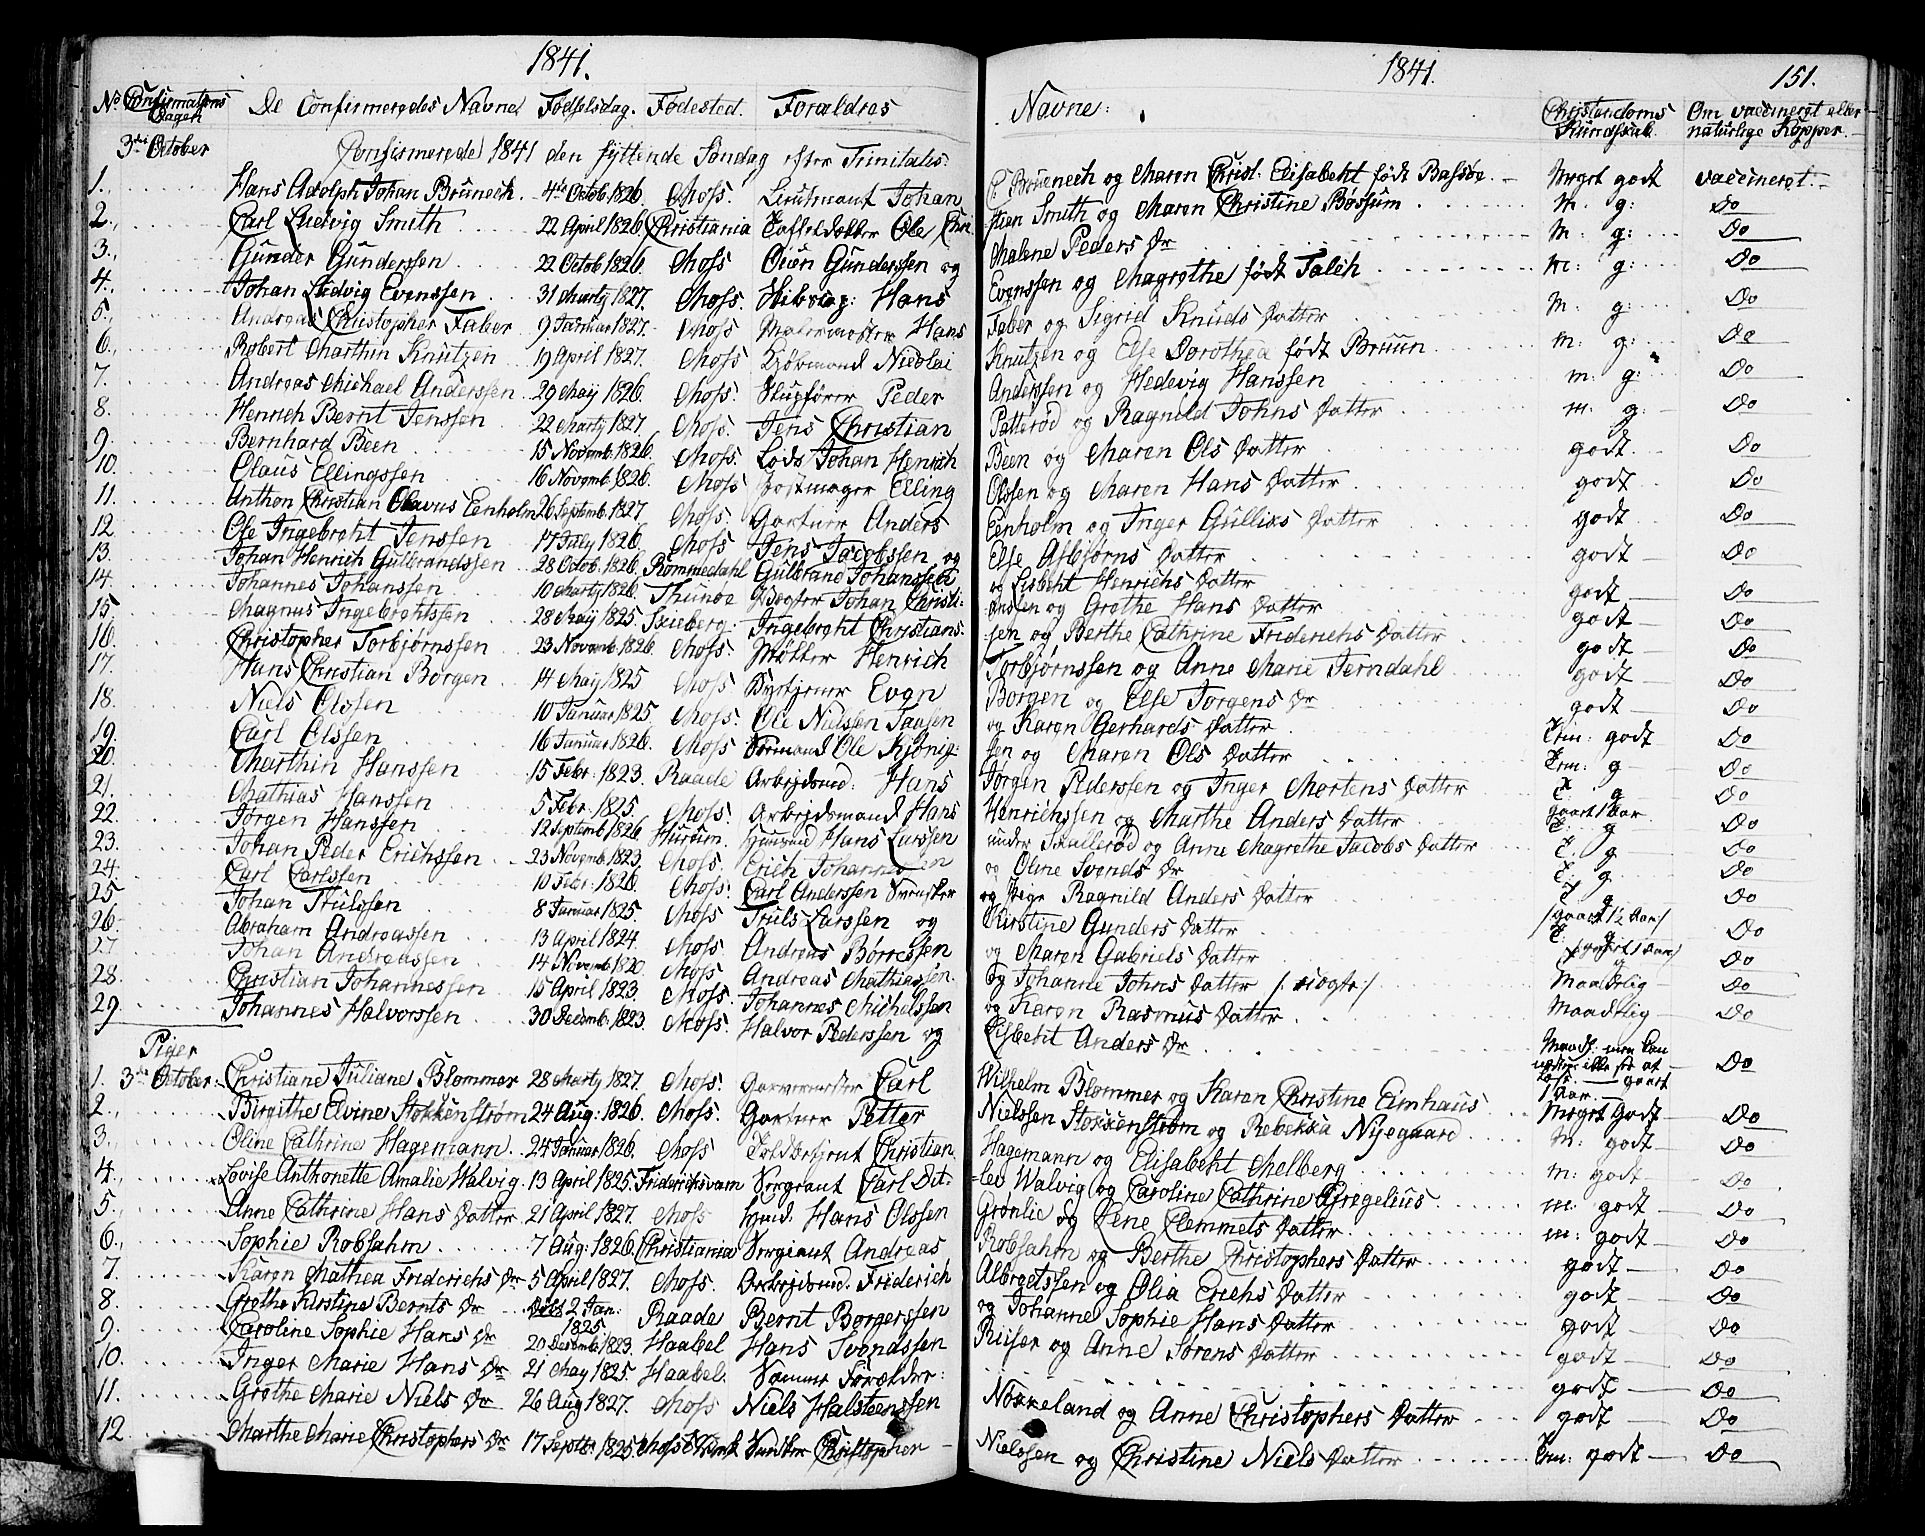 1841. 1841. 151.
No Confirmations Dagen De Confirmeredes Navne Fødselsdag. Fødested. Forældres Navne: Christendoms Kundskab. Om vaccineret eller naturlige Kopper.
3die October Confirmerede 1841 den syttende Søndag efter Trinitatis.
1. Hans Adolph Johan Brünech. 4de Octob. 1826. Moss. Lieutnant Johan C Brünech og Maren Christ. Elisabeht født Bassøe. Meget godt vaccineret.
2. Carl Ludvig Smith 22 April 1826. Christiania Ole Chri- stien Smith og Maren Christine Bøssum M: g: Do
3. Gunder Gunderssen 22 Octob 1826. Moss Gunderssen og Malene Peders Dr M: g: Do
4. Johan Ludvig Evenssen 31 Marty 1827. Moss. Hans Evenssen og Magrethe født M: g: Do
5. Andreas Christopher Faber 9 Januar 1827. Moss Malermester Hans Faber og Sigrid Knuds Datter M: g: Do
6. Robert Marthin Knutzen 19 April 1827. Moss Kjøbmand Nicolai Knutzen og Else Dorothea født Bruun m: g: Do
7. Andreas Michael Anderssen 29 May 1826. Moss. Peder Anderssen og Hedevig Hanssen m: g: Do
8. Henrich Bernt Jenssen 22 Marty 1827. Moss. Jens Christian Patterød og Ragnild Johns Datter m: g: Do
9. Bernhard Been 15 Novemb. 1826. Moss. Lods Johan Henrich Been og Maren Ols Datter godt Do
10. Claus Ellingssen 16 Novemb 1826. Moss Elling Olssen og Maren Hans Datter godt Do
11. Anthon Christian Olavus Eenholm 26 Septemb. 1827. Moss. Gartner Anders Eenholm og Inger Gulliks Datter godt Do
12. Ole Ingebreht Jenssen 17 July 1826. Moss Jens Jacobssen og Else Asbjørns Datter godt Do
13. Johan Henrich Gulbrandssen 28 Octob. 1826. Rommedahl Gulbrand Johanssen og Lisbeht Henrichs Datter godt Do
14. Johannes Johanssen 10 Marty 1826. Thunøe Johan Christi- anssen og Grethe Hans Datter godt Do
15. Magnus Ingebrehtssen 28 May 1825. Ingebreht Christians- sen og Berthe Cathrine Friderichs Datter godt Do
16. Christopher Torbjørnssen 23 Novemb 1826. Moss. Møller Henrich Torbjørnssen og Anne Marie Jerndahl godt Do
17. Hans Christian Borgen 14 May 1825 Moss Even Borgen og Else Jørgens Dr godt Do
18. Niels Olssen 10 Januar 1825. Moss. Ole Nielssen og Karen Gerhards Datter Tem: godt Do
19. Carl Olssen 16 Januar 1826. Moss Ole Kjønig- sen og Maren Ols Datter Tem: g Do
20. Marthin Hanssen 15 Febr: 1823. Raade Arbejdsmd: Hans Jørgen Pederssen og Inger Mortens Datter T. g Do
21. Mathias Hanssen 5 Febr: 1825. Moss Arbejdsmand Hans Henrichssen og Marthe Anders Datter gaaet 1 Aar. T. g Do
22. Jørgen Hanssen 12 Septemb 1826. Hurum. Huusmd Hans Larssen under Smallerød og Anne Magrethe Jacobs Datter T. g Do
23. Johan Peder Erichssen 23 Novemb. 1823. Moss. Erich Johannessen og Oline Svends Dr T: g Do
24. Carl Carlssen 10 Febr: 1826. Moss. Carl Anderssen Svensker og Pige Ragnild Anders Datter T g Do
25. Johan Trulssen 8 Januar 1825. Moss Truls Larssen og Kirstine Gunders Datter /gaaet 1½ Aar/ T: g Do
26. Abraham Andreassen 13 April 1824. Moss Andreas Børressen og Maren Gabriels Datter /gaaet 1 Aar/ g Do
27. Johan Andreassen 14 Novemb 1820. Moss Andreas Mathiassen og Johanne Johns Datter Maadelig Do
28. Christian Johannessen 15 April 1823. Moss. Johannes Michelssen og Karen Rasmus Datter Maadelig Do
29. Johannes Halvorssen 30 Decemb. 1823. Moss. Halvor Pederssen og Elsbeht Anders Dr Maadl: men kan ikke gaaet 1 Aar. Do
Piger
1. 3die October: Christiane Juliane Blommer 28 Marty 1827. Moss. Garvemester Carl Wilhelm Blommer og Karen Christine Eimhaus Meget godt Do
2. Birgithe Elvine Stokkenstrøm 24 Aug: 1826. Moss. Gartner Petter Nielssen Stokkenstrøm og Rebekka Nyegaard M: godt Do
3. Oline Cathrine Hagemann 24 Januar 1826. Moss Toldbetjent Christian Hagemann og Elisabeht Melberg m: godt Do
4. Lovise Anthonette Amalie Walvig 13 April 1825. Friderichsværn Sergeant Carl Dit- lev Walvig og Caroline Cathrine Gregelius m: godt Do
5. Anne Cathrine Hans Datter 21 April 1827. Moss Huusmd. Hans Olssen Grønlie og Lene Clemmets Datter m: godt Do
6. Sophie Robsahm 7 Aug: 1826. Christiania Sergeant Andreas Robsahm og Berthe Christophers Datter godt Do
7. Karen Mathea Friderichs Dr 5 April 1827. Moss. Arbejdsmd. Friderich Albregtssen og Olia Erichs Datter godt Do
8. Grethe Kirstine Bernts Dr 2 Jan: 1825 Raade Bernt Borgerssen og Johanne Sophie Hans Datter godt Do
9. Caroline Sophie Hans Dr 20 Decemb. 1823. Haabel Hans Svendssen Riiser og Anne Sørens Datter godt Do
10. Inger Marie Hans Dr 21 May 1825. Haabel. Samme Forældre: godt Do
11. Grethe Marie Niels Dr 26 Aug 1827. Moss Niels Halsteenssen Nokkeland og Anne Christophers Datter godt Do
12. Marthe Marie Christophers Dr 17 Septbr: 1825. Moss Værk Christopher Nielssen og Christine Niels Datter Tem: godt Do